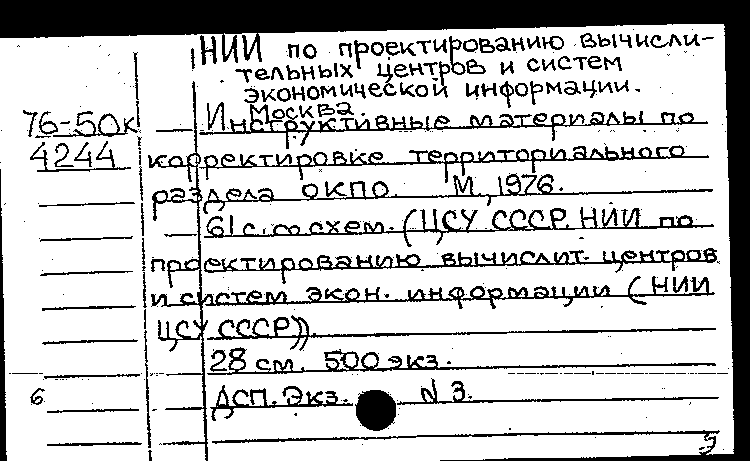 НИИ по проектированию вычисли-
тельных центров и систем
экономической информации.
Москва
76-50к Инструктивные материалы по
4244 корректировке территориального
раздела ОКПО. М., 1976.
61 с. со схем. (ЦСУ СССР. НИИ по
проектированию вычислит. центров
и систем экон. информации (НИИ
ЦСУ СССР)).
28 см. 500 экз.
6 ДСП. Экз. N 3.